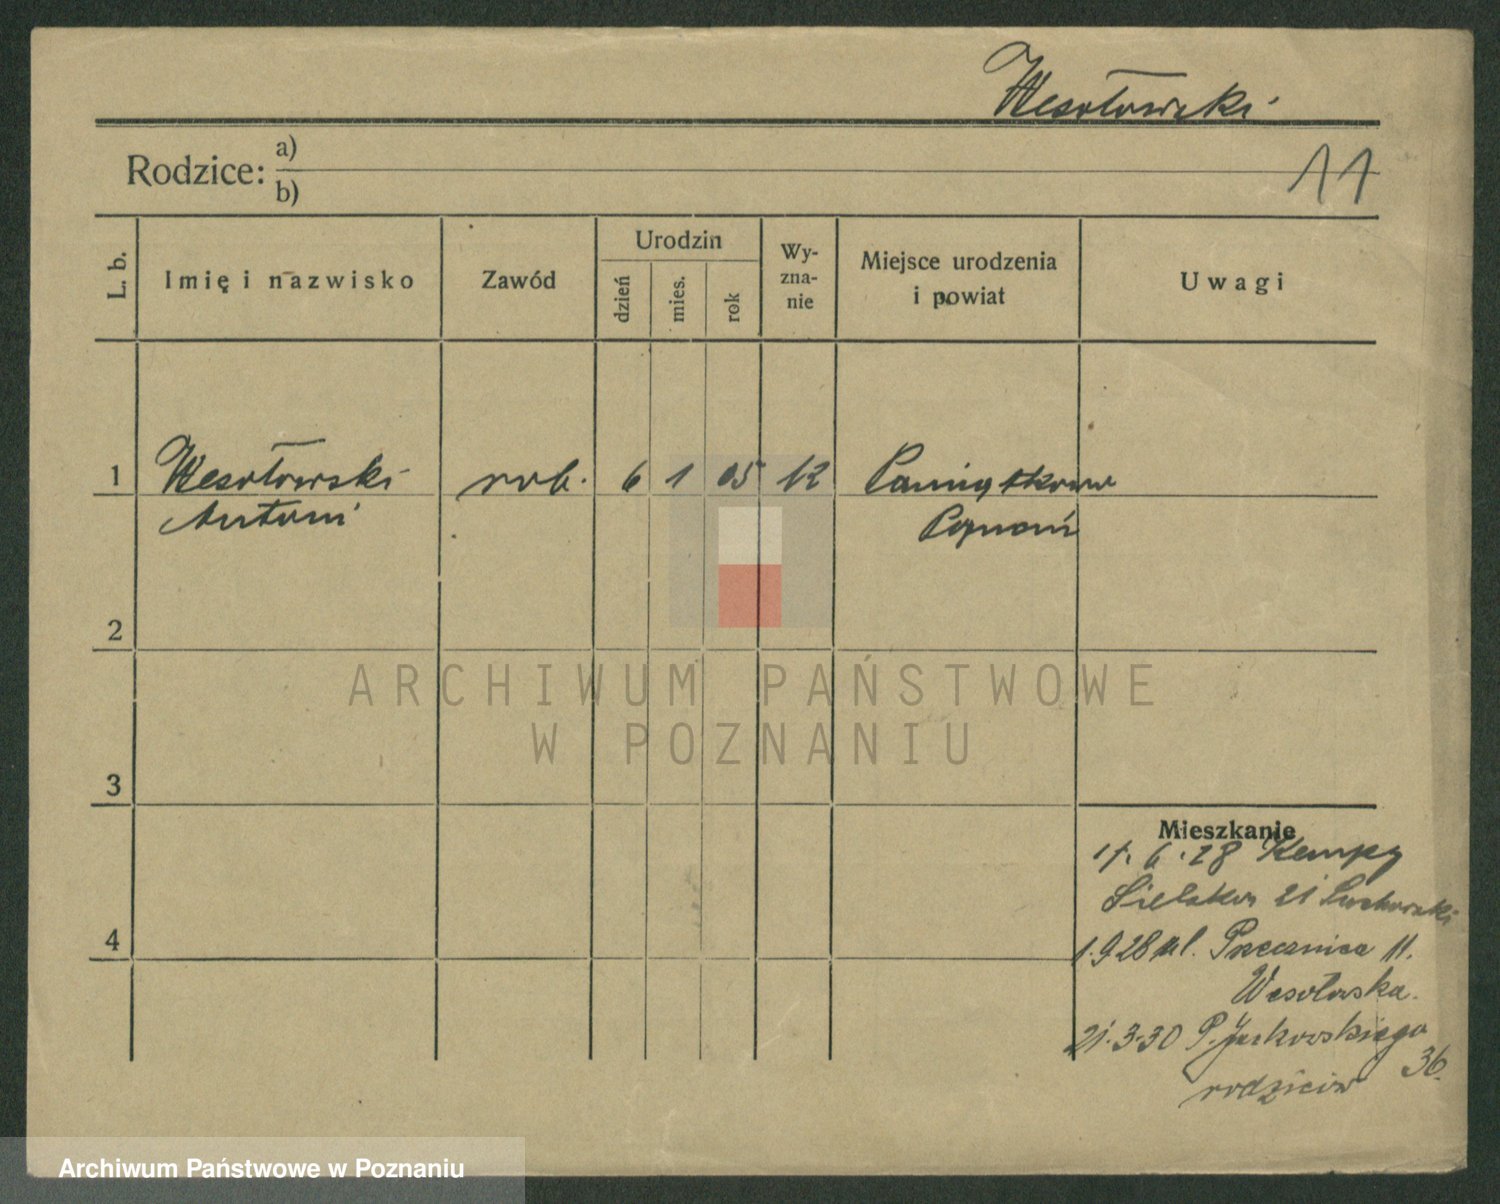 Wesołowski
11
Rodzice: a)
b)
L. b.
Imię i nazwisko
Zawód
Urodzin
dzień
mies.
rok
Wy-
zna-
nie
Miejsce urodzenia
i powiat
Uwagi
1
Wesołowski rob. 6 1 05 k Pamiątkowo
Antoni Poznań
2
3
4
ARCHIWUM PAŃSTWOWE
W POZNANIU
Mieszkanie
6.28
21
1.9.28 ul. Przecznica 11.
Wesołowska.
21.3.30 P. Jackowskiego
36.
rodziców
Archiwum Państwowe w Poznaniu